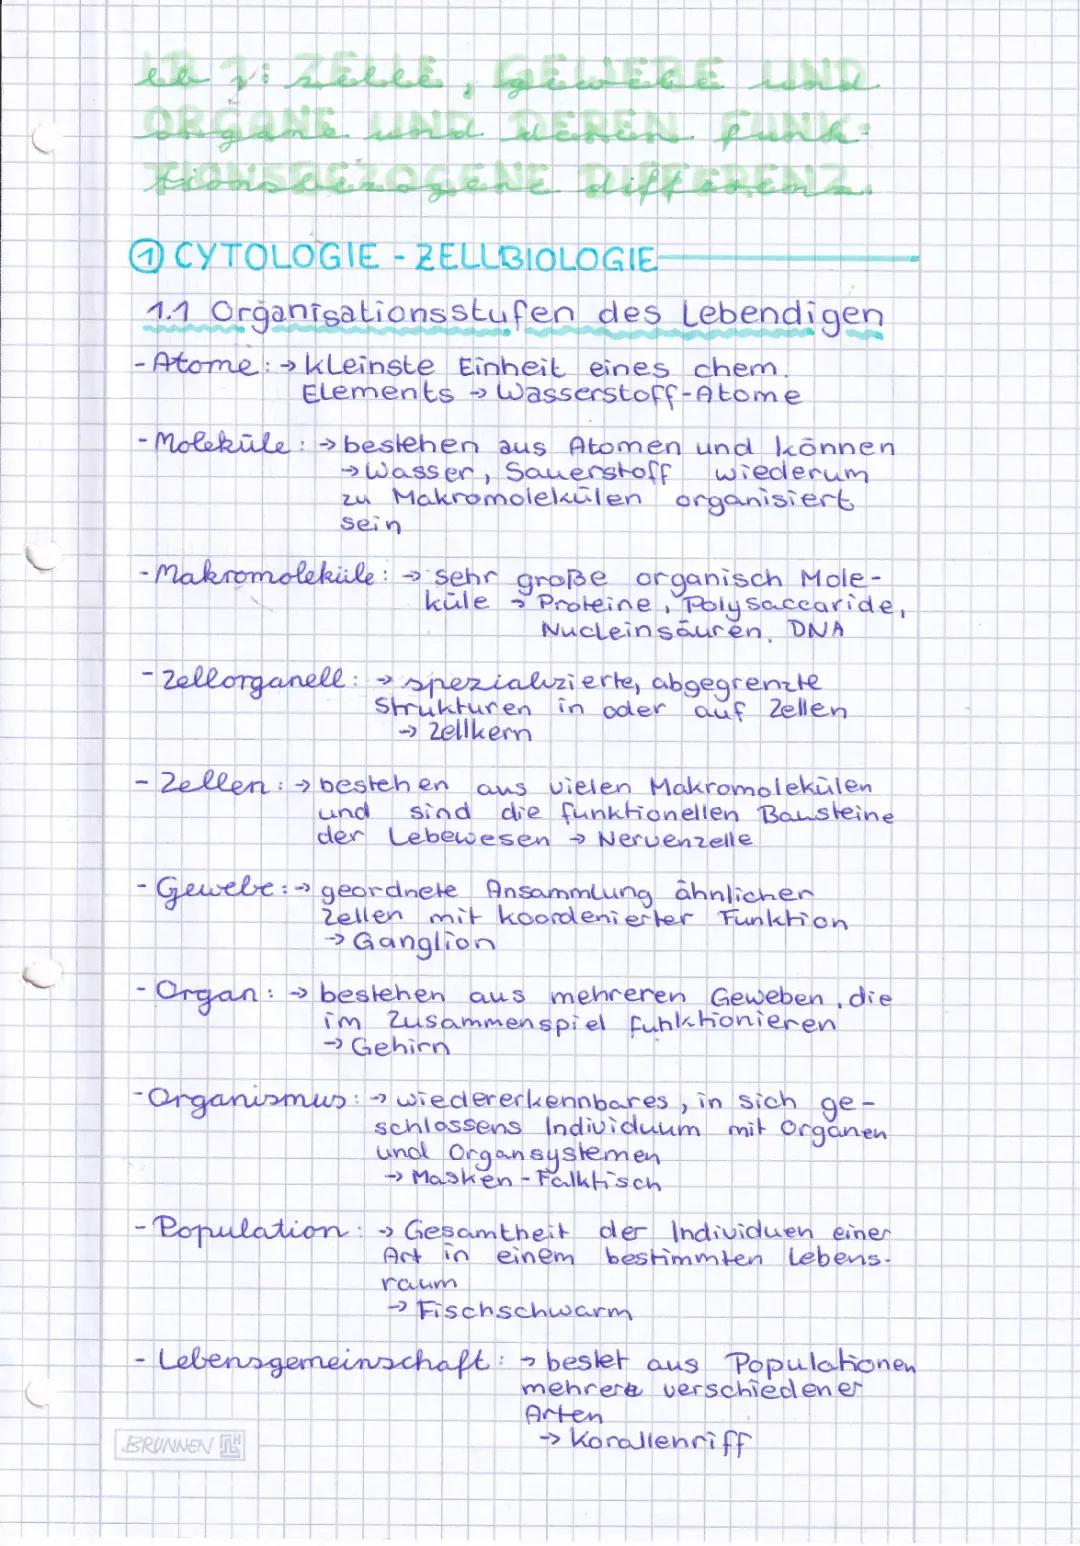 ZELLE, GEWEBE UND
ORGANE UND DEREN FUNK-
TIONSBEZOGENE DIFFERENZ.
① CYTOLOGIE - ZELLBIOLOGIE
1.1 Organisationsstufen des Lebendigen
- Atome: → kleinste Einheit eines chem.
Elements → Wasserstoff-Atome
- Moleküle: → bestehen aus Atomen und können
→ Wasser, Sauerstoff wiederum
zu Makromolekülen organisiert
sein
- Makromoleküle: → sehr große organisch Mole-
küle → Proteine, Polysaccaride,
Nucleinsäuren, DNA
- Zellorganell: → spezializierte, abgegrenzte
Strukturen in oder auf Zellen
→ Zellkern
- Zellen: → bestehen aus vielen Makromolekülen
und sind die funktionellen Bausteine
der Lebewesen → Nervenzelle
- Gewebe: → geordnete Ansammlung ähnlicher
Zellen mit koordenierter Funktion
→ Ganglion
- Organ: → bestehen aus mehreren Geweben, die
im Zusammenspiel funktionieren
→ Gehirn
- Organismus: → wiedererkennbares, in sich ge-
schlossens Individuum mit Organen
und Organsystemen
→ Masken-Falkfisch
- Population: → Gesamtheit der Individuen einer
Art in einem bestimmten Lebens-
raum
→ Fischschwarm
- Lebensgemeinschaft: → bestet aus Populationen
mehrere verschiedener
Arten
→ Korallenriff
BRUNNEN